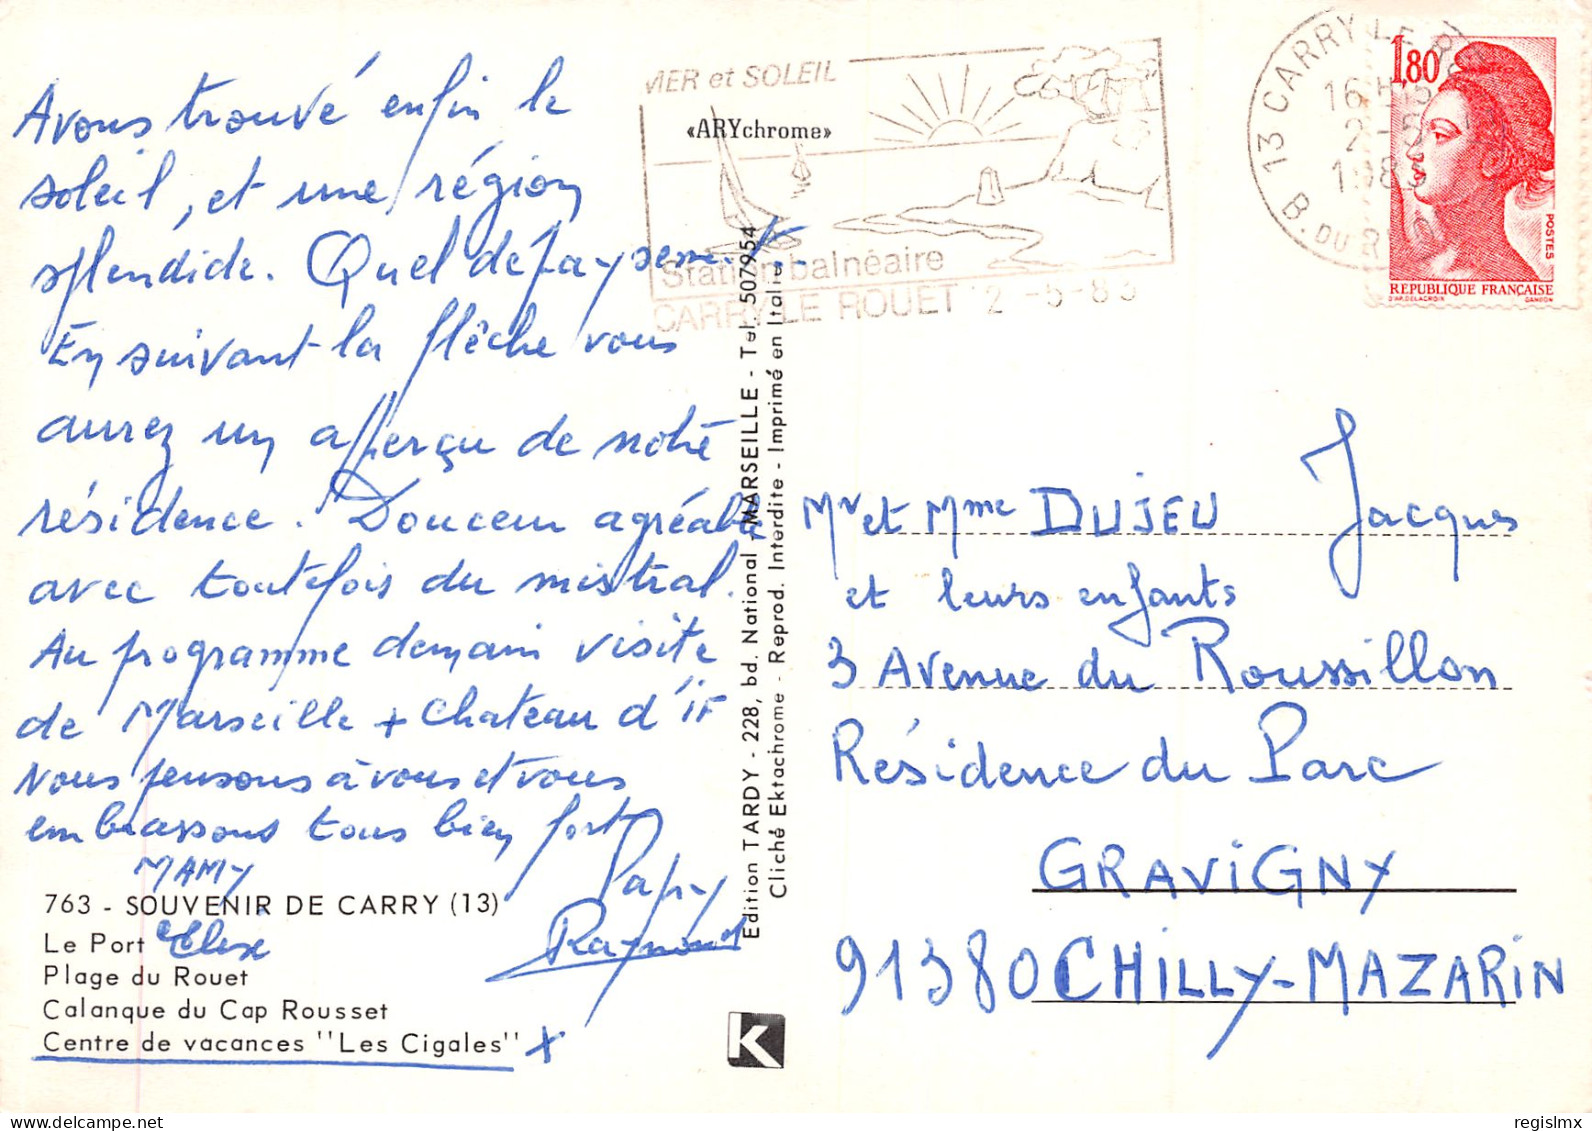 Avons trouvé enfin le
soleil, et une région
splendide. Quel dépaysement
En suivant la flêche vous
aurez un aperçu de notre
résidence. Douceur agréable
avec toutefois du mistral.
Au programme demain visite
de Marseille + Chateau d'iF
Nous pensons à vous et vous
embrassons tous bien fort
MAMY
Papy
Raymond
763 - SOUVENIR DE CARRY (13)
Le Port
Plage du Rouet
Calanque du Cap Rousset
Centre de vacances "Les Cigales" x
Edition TARDY - 228, bd. National - MARSEILLE - Tel. 507954
Cliché Ektachrome - Reprod. Interdite - Imprimé en Italie
K
MER et SOLEIL
«ARYchrome»
Station balnéaire
CARRY LE ROUET 2-5-85
13 CARRY LE R
16H
2-5
1985
B. DU RH
1,80
POSTES
RÉPUBLIQUE FRANÇAISE
D'AP. DELACROIX GANDON
Mr et Mme DUJEU Jacques
et leurs enfants
3 Avenue du Roussillon
Résidence du Parc
GRAViGNY
91380 CHiLLY-MAZARiN
regislmx